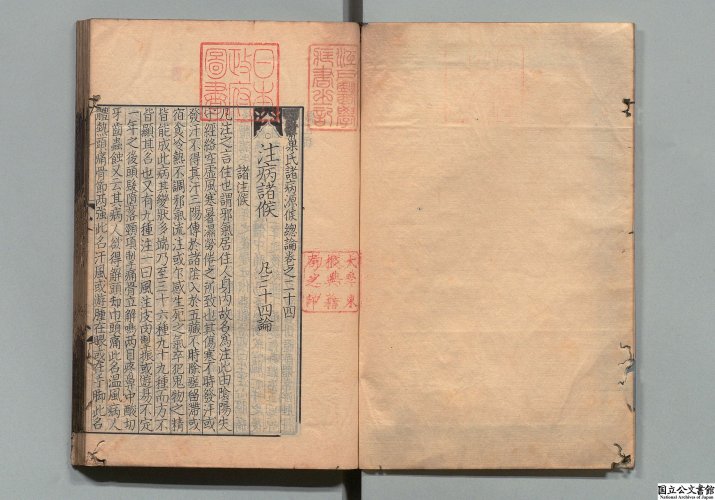 巢氏諸病源候總論卷之二十四
注病諸候 凡三十四論
諸注候
凡注之言住也謂邪氣居住人身內故名為注此由陰陽失
守經絡空虛風寒暑濕勞倦之所致也其傷寒不時發汗或
發汗不得真汗三陽傳於諸陰入於五臟不時除瘥留滯或
宿食冷熱不調邪氣流注或乍感生死之氣卒犯鬼物之精
皆能成此病其變狀多端乃至三十六種九十九種而方不
皆顯其名也又有九種注一曰風注皮肉掣振或遊易不定
一年之後頭髮墮落頸項掣痛骨立解鳴兩目疼鼻中酸切
牙齒蟲蝕又云其病人欲得解頭却巾頭痛此名溫風病人
體熱頭痛骨節兩強此名汗風或遊腫在腹或在手脚此名
日本政府圖書
大學東校典籍局之印
国立公文書館
National Archives of Japan